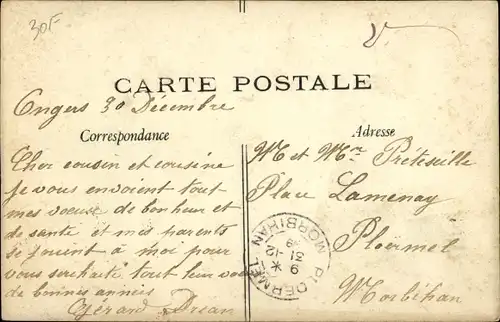 30F
CARTE POSTALE
Angers 30 Décembre
Correspondance
Adresse
Cher cousin et cousine
je vous envoient tout
mes voeuse de bonheur et
de santé et mes parents
se joient à moi pour
vous surhaite tout leur voeu
de bonnes années
Gérard Drean
M et Mme Préteseille
Place Lamenay
Ploërmel
Morbihan
PLOERMEL
9 *
31 -12
09
MORBIHAN